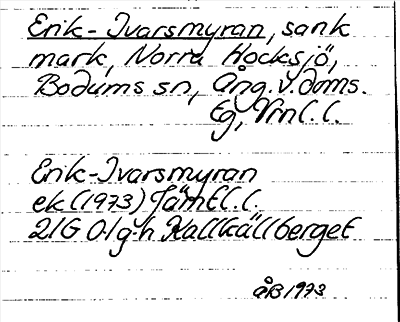 Erik-Ivarsmyran, sank
mark, Norra Hocksjö,
Bodums sn, Ång. v. doms.
Eg, Vrnl. l.
Erik-Ivarsmyran
ek (1973) Jämtl. l.
21G 0-1 g-h Kallkällberget
ÅB 1973